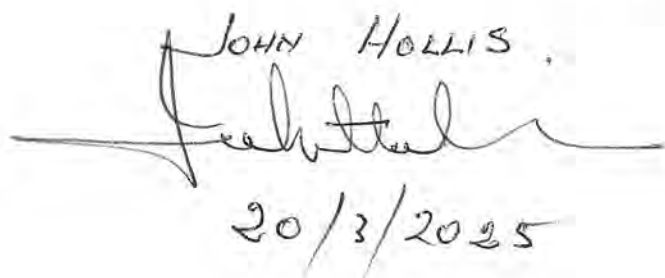 JOHN HOLLIS.
20/3/2025